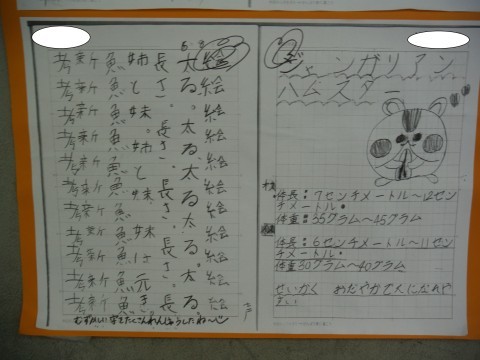 絵絵絵絵絵絵絵絵絵絵
太る。太る。太る。太る。
長さ。長さ。長さ。長さ。長
姉と妹。姉と妹。妹は元き
魚魚魚魚魚魚魚魚魚魚
新新新新新新新新新新
考考考考考考考考考考
むずかしい字をたくさんれんしゅうしたね〜
ジャンガリアン
ハムスター
体長：7センチメートル〜12セン
チメートル。
体重：35グラム〜45グラム
体長：6センチメートル〜11セン
チメートル。
体重30グラム〜40グラム
せいかく　おだやかで人になれや
すい